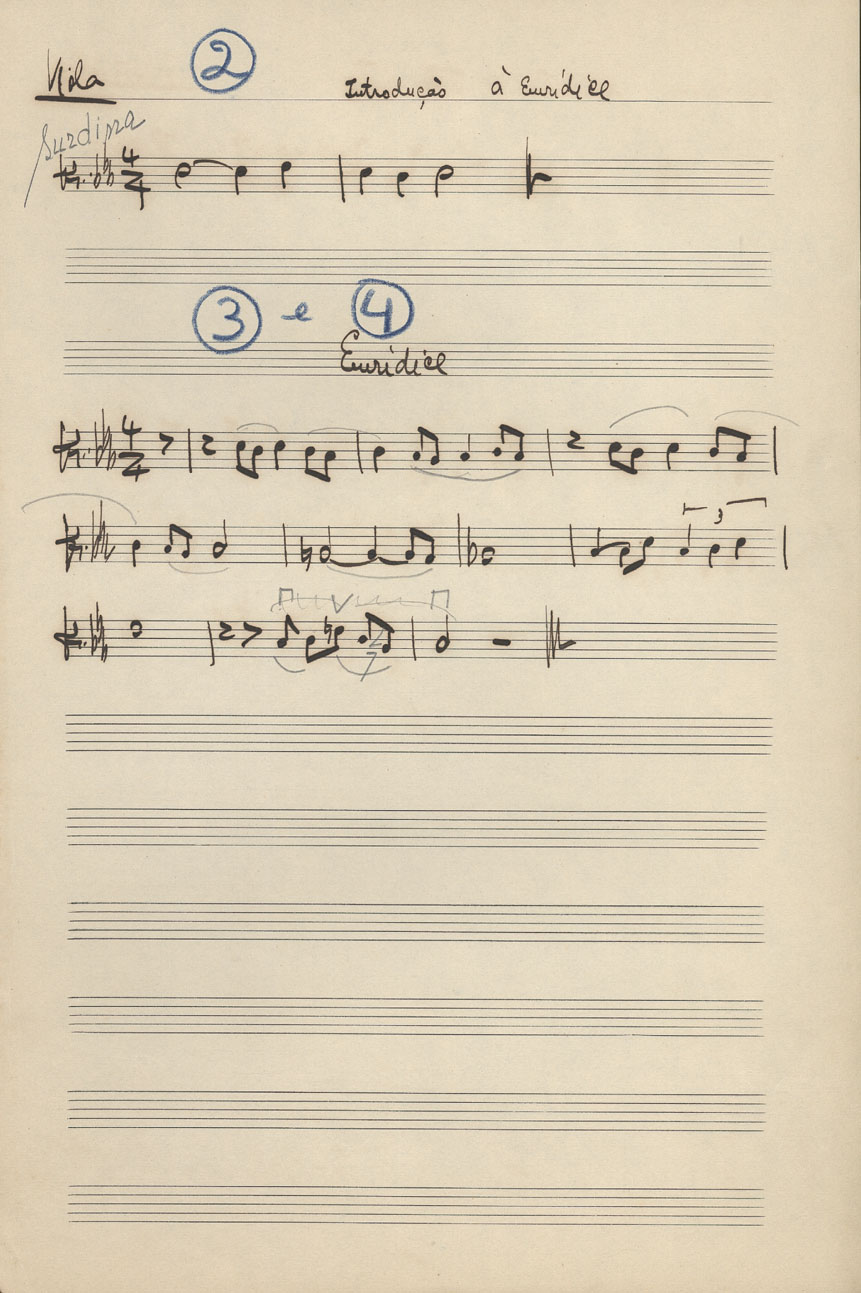 Viola ② Introdução à Eurídice
Surdina
4/4
③ e ④
Eurídice
4/4
3